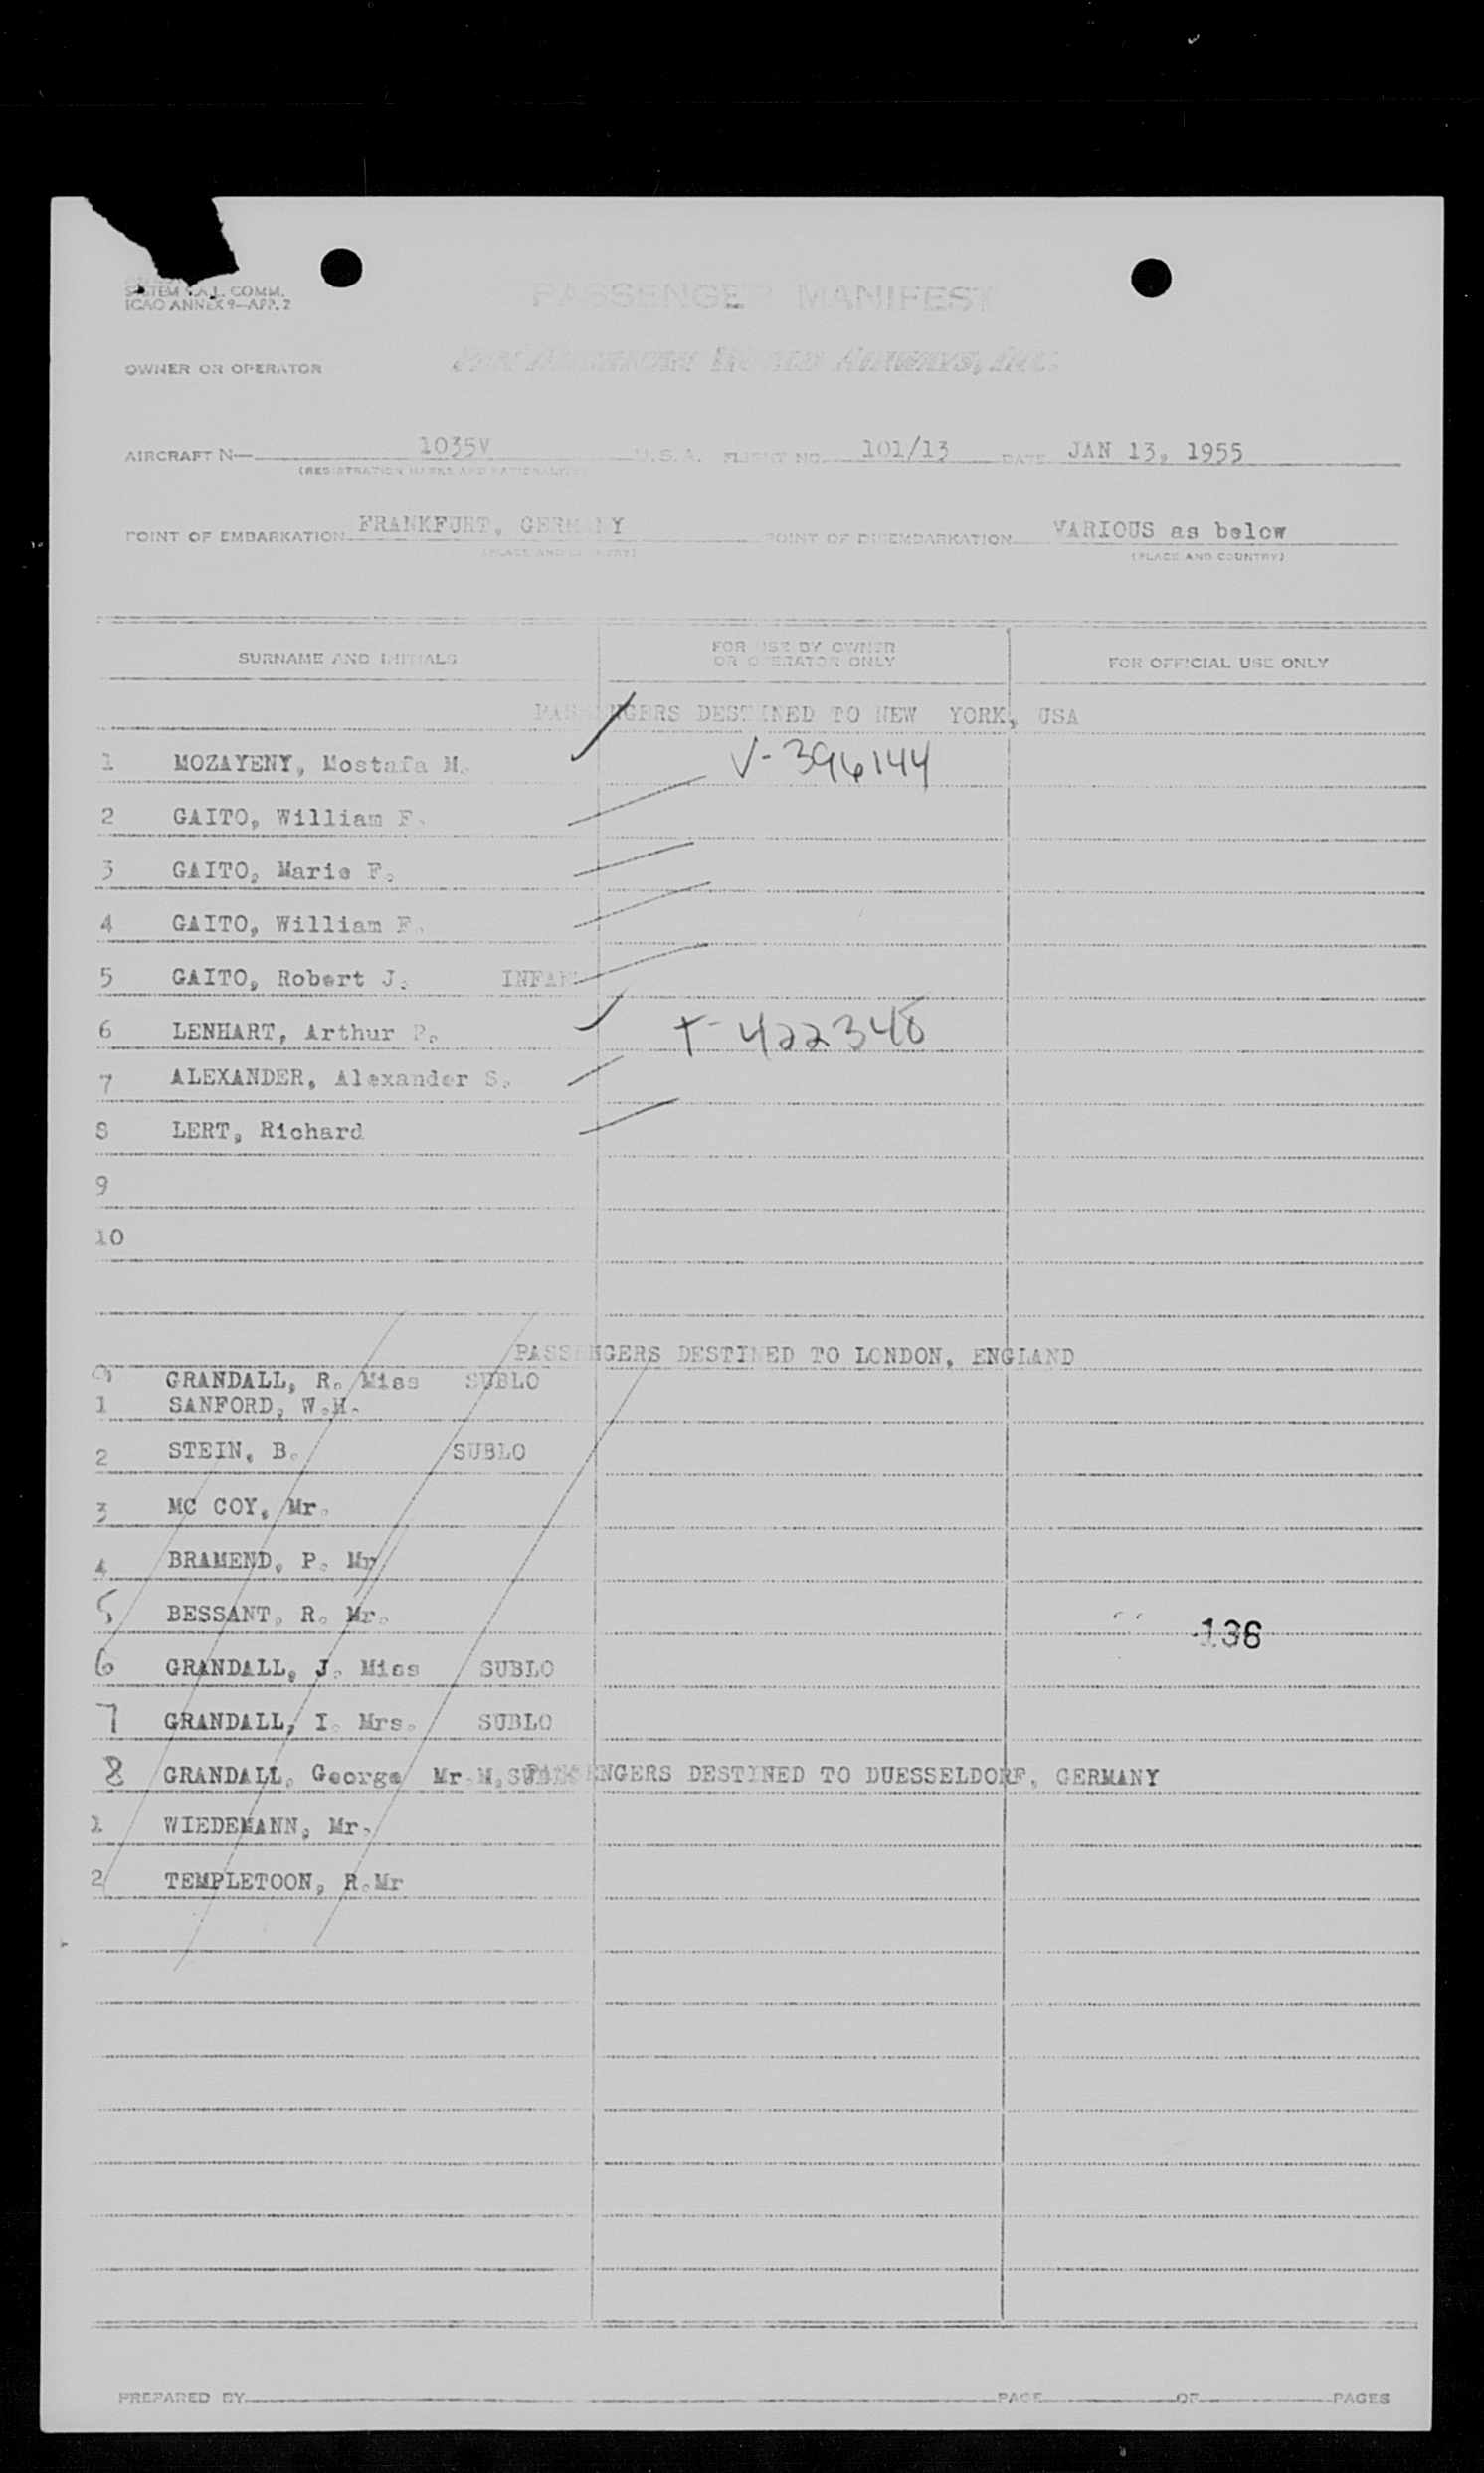 SYSTEM C.A.L. COMM.
ICAO ANNEX 9—APP. 2
PASSENGER MANIFEST
OWNER OR OPERATOR PAN AMERICAN WORLD AIRWAYS, INC.
AIRCRAFT N— 1035V U.S.A. FLIGHT NO. 101/13 DATE JAN 13, 1955
(REGISTRATION MARKS AND NATIONALITY)
POINT OF EMBARKATION FRANKFURT, GERMANY POINT OF DISEMBARKATION VARIOUS as below
(PLACE AND COUNTRY) (PLACE AND COUNTRY)
SURNAME AND INITIALS FOR USE BY OWNER OR OPERATOR ONLY FOR OFFICIAL USE ONLY
PASSENGERS DESTINED TO NEW YORK, USA
1 MOZAYENY, Mostafa M. V-396144
2 GAITO, William F.
3 GAITO, Marie F.
4 GAITO, William F.
5 GAITO, Robert J. INFANT
6 LENHART, Arthur P. T-422348
7 ALEXANDER, Alexander S.
8 LERT, Richard
9
10
PASSENGERS DESTINED TO LONDON, ENGLAND
9 GRANDALL, R. Miss SUBLO
1 SANFORD, W.H.
2 STEIN, B. SUBLO
3 MC COY, Mr.
4 BRAMEND, P. Mr
5 BESSANT, R. Mr.
136
6 GRANDALL, J. Miss SUBLO
7 GRANDALL, I. Mrs. SUBLO
8 GRANDALL, George Mr. M. PASSENGERS DESTINED TO DUESSELDORF, GERMANY
1 WIEDEMANN, Mr.
2 TEMPLETOON, R.Mr
PREPARED BY PAGE OF PAGES